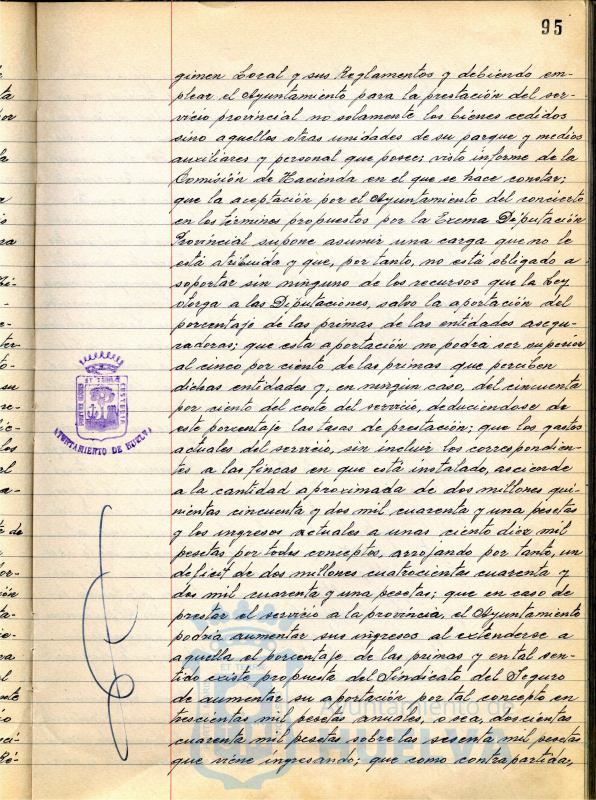 95
gimen Local y sus Reglamentos y debiendo em-
plear el Ayuntamiento para la prestación del ser-
vicio provincial no solamente los bienes cedidos
sino aquellas otras unidades de su parque y medios
auxiliares y personal que posee; visto informe de la
Comisión de Hacienda en el que se hace constar;
que la aceptación por el Ayuntamiento del concierto
en los términos propuestos por la Excma Diputación
Provincial supone asumir una carga que no le
está atribuida y que, por tanto, no está obligado a
soportar sin ninguno de los recursos que la Ley
otorga a las Diputaciones, salvo la aportación del
porcentaje de las primas de las entidades asegu-
radoras; que esta aportación no podrá ser superior
al cinco por ciento de las primas que perciben
dichas entidades y, en ningún caso, del cincuenta
por ciento del coste del servicio, deduciendose de
este porcentaje las tasas de prestación; que los gastos
actuales del servicio, sin incluir los correspondien-
tes a las fincas en que está instalado, asciende
a la cantidad aproximada de dos millones qui-
nientas cincuenta y dos mil cuarenta y una pesetas
y los ingresos actuales a unas ciento diez mil
pesetas por todos conceptos, arrojando por tanto, un
deficit de dos millones cuatrocientas cuarenta y
dos mil cuarenta y una pesetas; que en caso de
prestar el servicio a la provincia, el Ayuntamiento
podria aumentar sus ingresos al extenderse a
aquella el porcentaje de las primas y en tal sen-
tido existe propuesta del Sindicato del Seguro
de aumentar su aportación por tal concepto en
trescientas mil pesetas anuales, o sea, doscientas
cuarenta mil pesetas sobre las sesenta mil pesetas
que viene ingresando; que como contrapartida,
AYUNTAMIENTO DE HUELVA
Ayuntamiento de
HUELVA